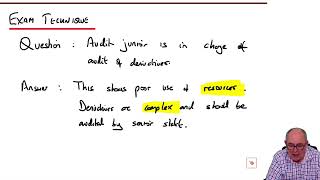 EXAM TECHNIQUE
Question : Audit junior is in charge of
audit of derivatives.
Answer : This shows poor use of resources.
Derivatives are complex and should be
audited by senior staff.